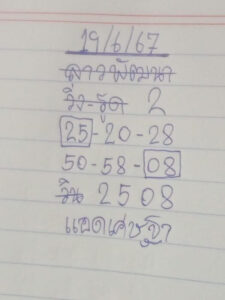 19/6/67
ลาวพัฒนา
วิ่ง-รูด 2
25-20-28
50-58-08
วิน 2508
แอดเศรษฐา